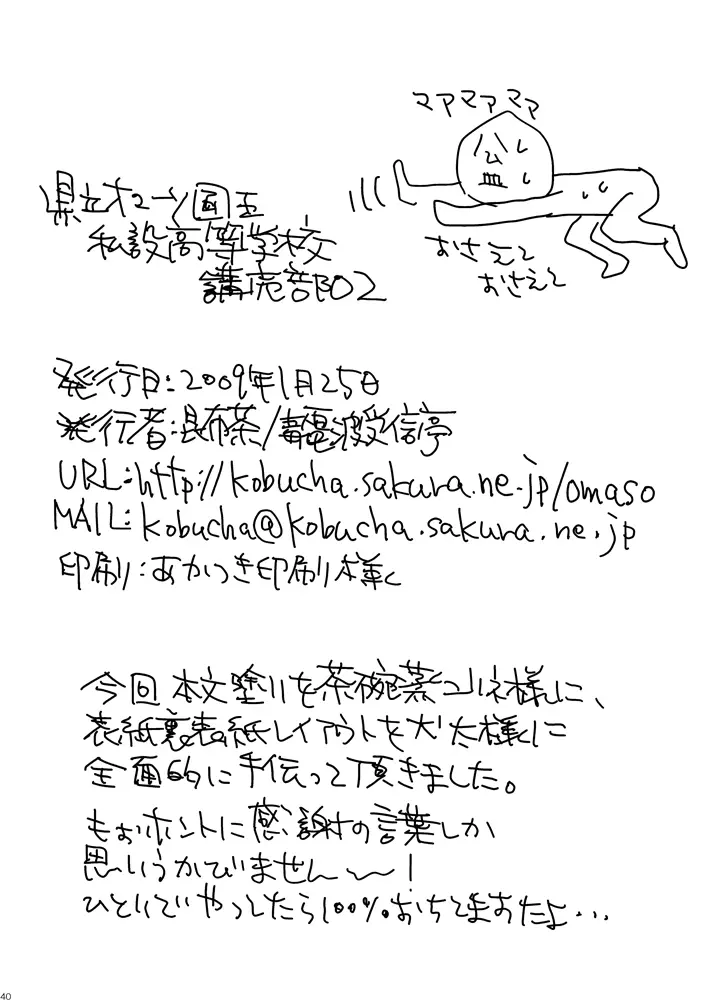 マアマアマア
公
皿
おさえて
おさえて
県立 国王
私設高等学校
購売部02
発行日:2009年1月25日
発行者:昆布茶/毒電波受信亭
URL:http://kobucha.sakura.ne.jp/omaso
MAIL:kobucha@kobucha.sakura.ne.jp
印刷:あかつき印刷様
今回本文塗りを茶碗蒸 様に、
表紙裏表紙レイアウトを犬太様に
全面的に手伝って頂きました。
もぉホントに感謝の言葉しか
思いうかびません〜!
ひとりでやってたら100%おちてますたよ…
40